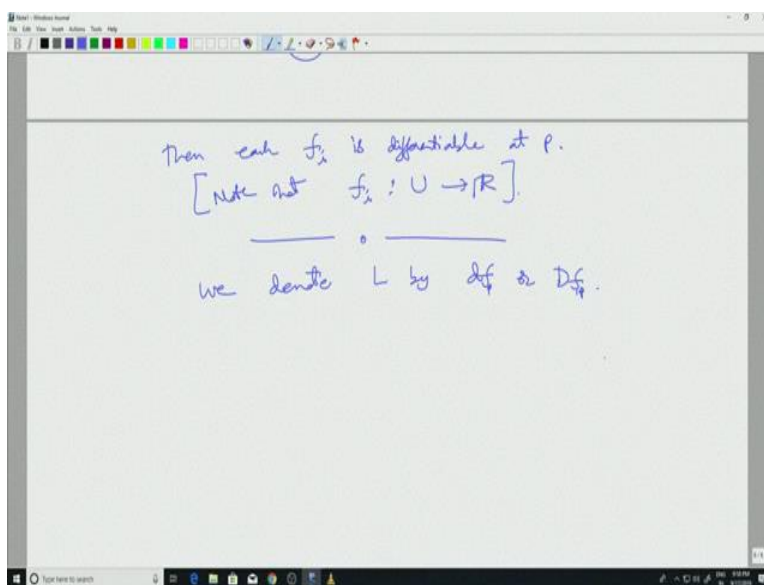 Note1 - Windows Journal
File Edit View Insert Actions Tools Help
Then each fᵢ is differentiable at p.
[Note that fᵢ : U → ℝ].
We denote L by df_p or Df_p.
Type here to search